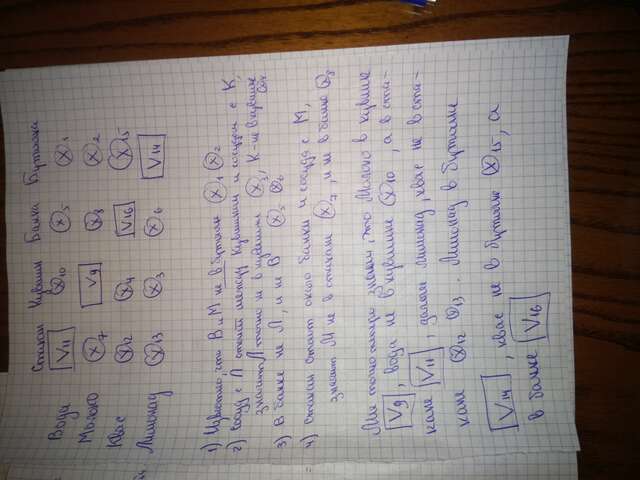 Стакан Кувшин Банка Бутылка
Вода V11 X10 X5 X1
Молоко X7 V9 X8 X2
Квас X12 X4 V16 X15
Лимонад X13 X3 X6 V14
1) Известно, что В и М не в бутылке X1 X2
2) Сосуд с Л стоит между кувшином и сосудом с К,
значит Л точно не в кувшине X3, К - не в кувшине X4
3) В банке не Л, и не В X5 X6
4) Стакан стоит около банки и сосуда с М,
значит М не в стакане X7, и не в банке X8
Мы точно знаем, что Молоко в кувшине
V9, вода не в кувшине X10, а в ста-
кане V11, дальше лимонад, квас не в ста-
кане X12 X13. Лимонад в бутылке
V14, квас не в бутылке X15, а
в банке V16